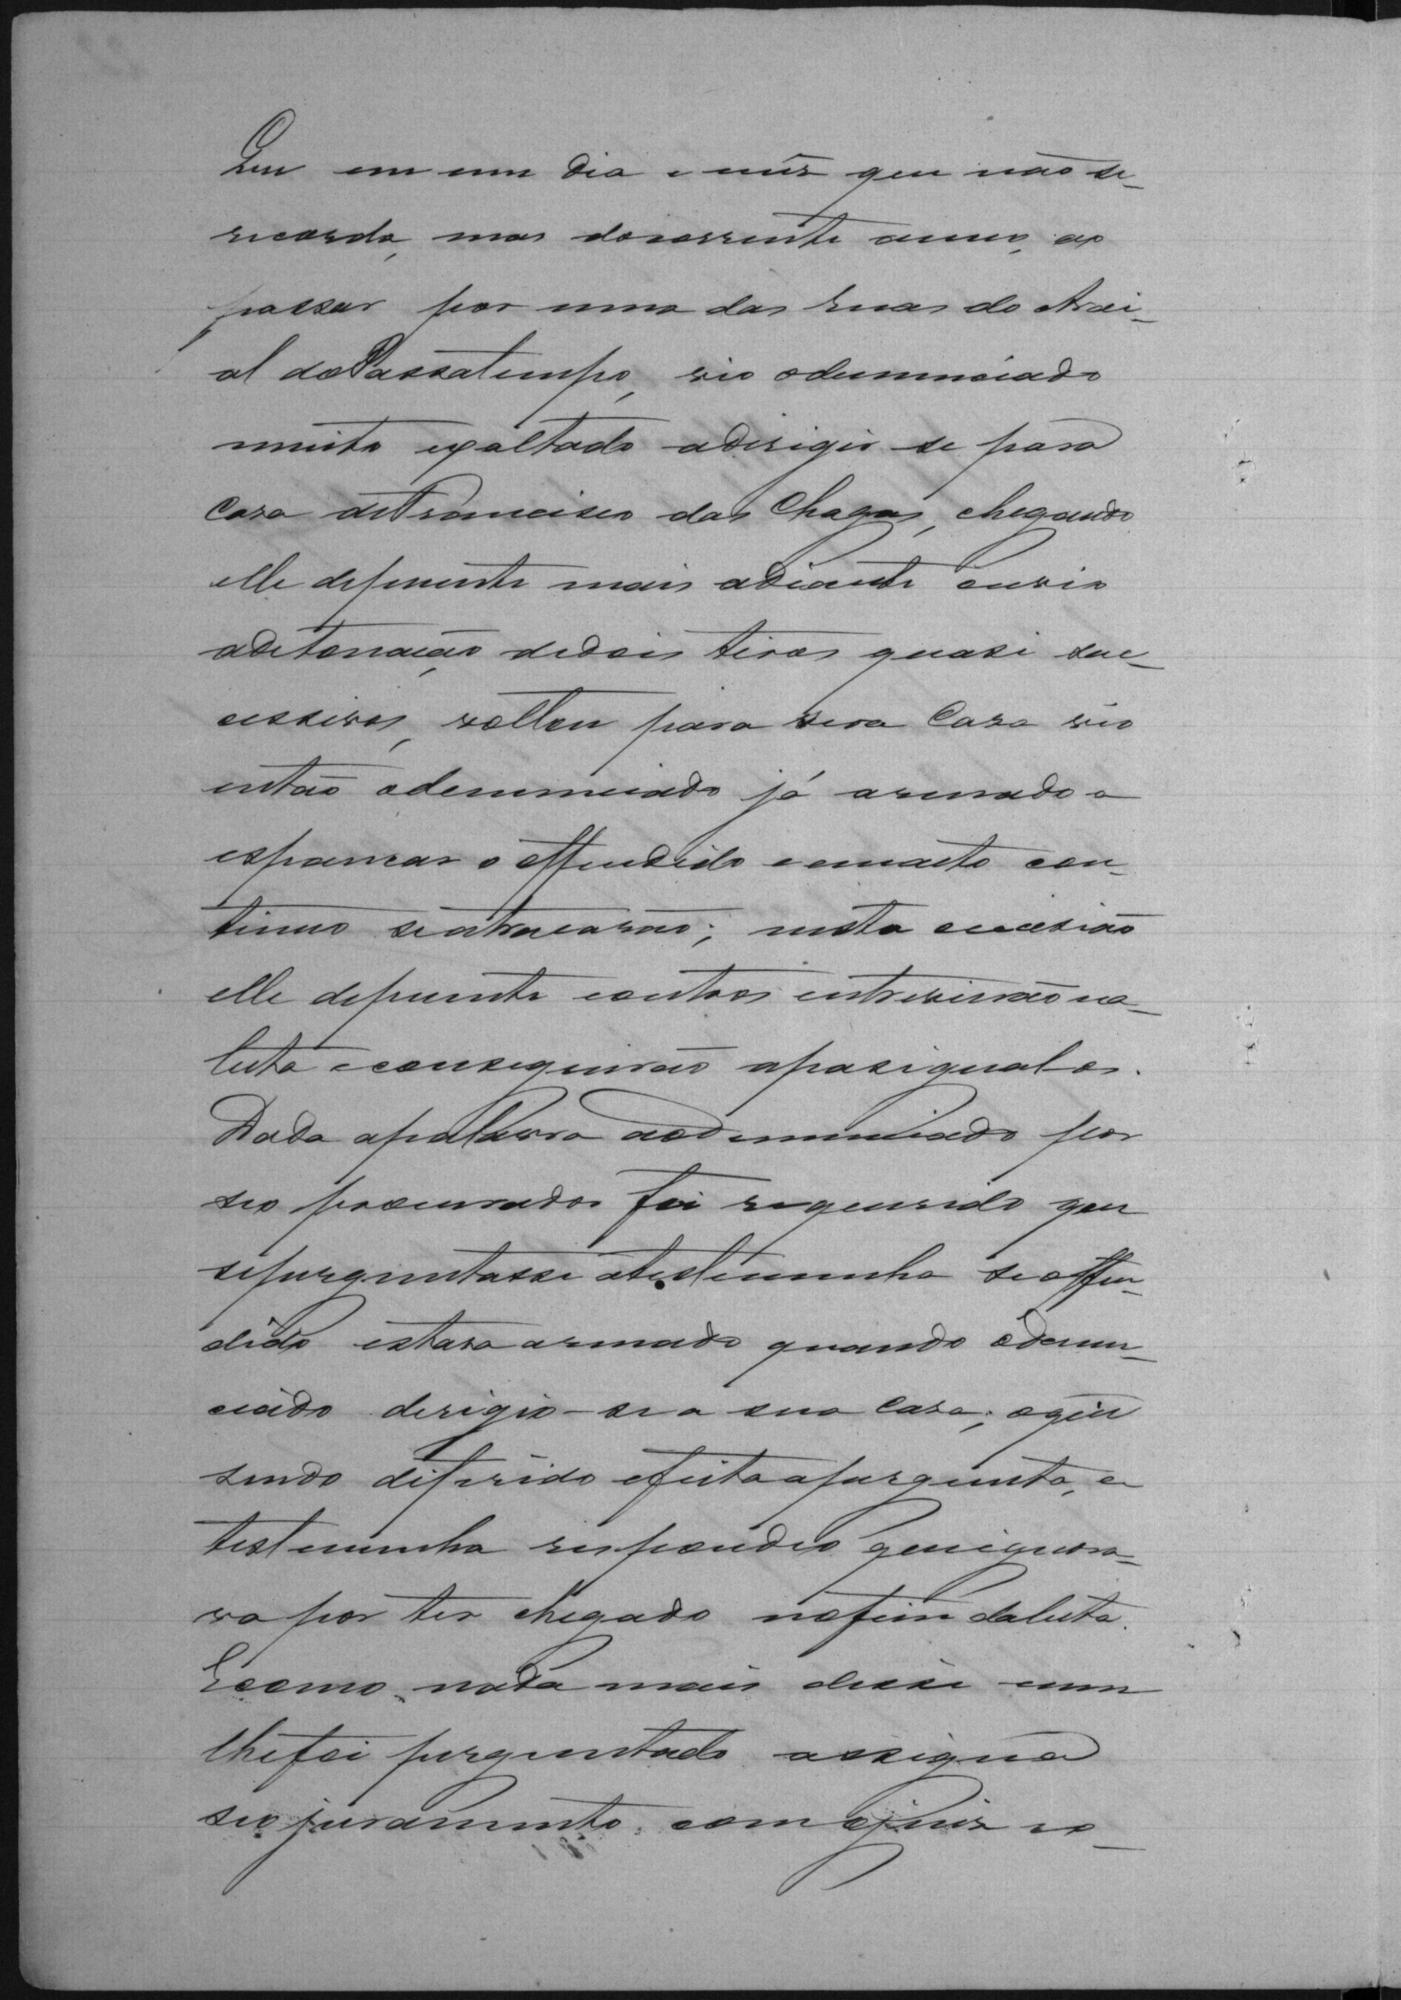 Que em um dia e mês que não se
recorda, mas do corrente anno, ao
passar por uma das ruas do Arai-
al do Passatempo, vio o denunciado
muito exaltado a dirigir se para
casa de Francisco das Chagas, chegando
elle depoente mais adiante ouvio
a detonação de dois tiros quasi suc-
cessivos, voltou para sua casa vio
então o denunciado já armado a
espancar o offendido e em acto con-
tinuo se atracarão; nesta occasião
elle depoente e outros intervierão na
luta e conseguirão apasigual os.
Dada a palavra ao denunciado por
seo procurador foi requerido que
se perguntasse a testemunha se o offen-
dido estava armado quando o denun-
ciado dirigio-se a sua casa; o que
sendo deferido e feita a pergunta, a
testemunha respondeo que ignora-
va por ter chegado no fim da luta.
E como nada mais disse nem
lhe foi perguntado assigna
seo juramento com o juiz no-